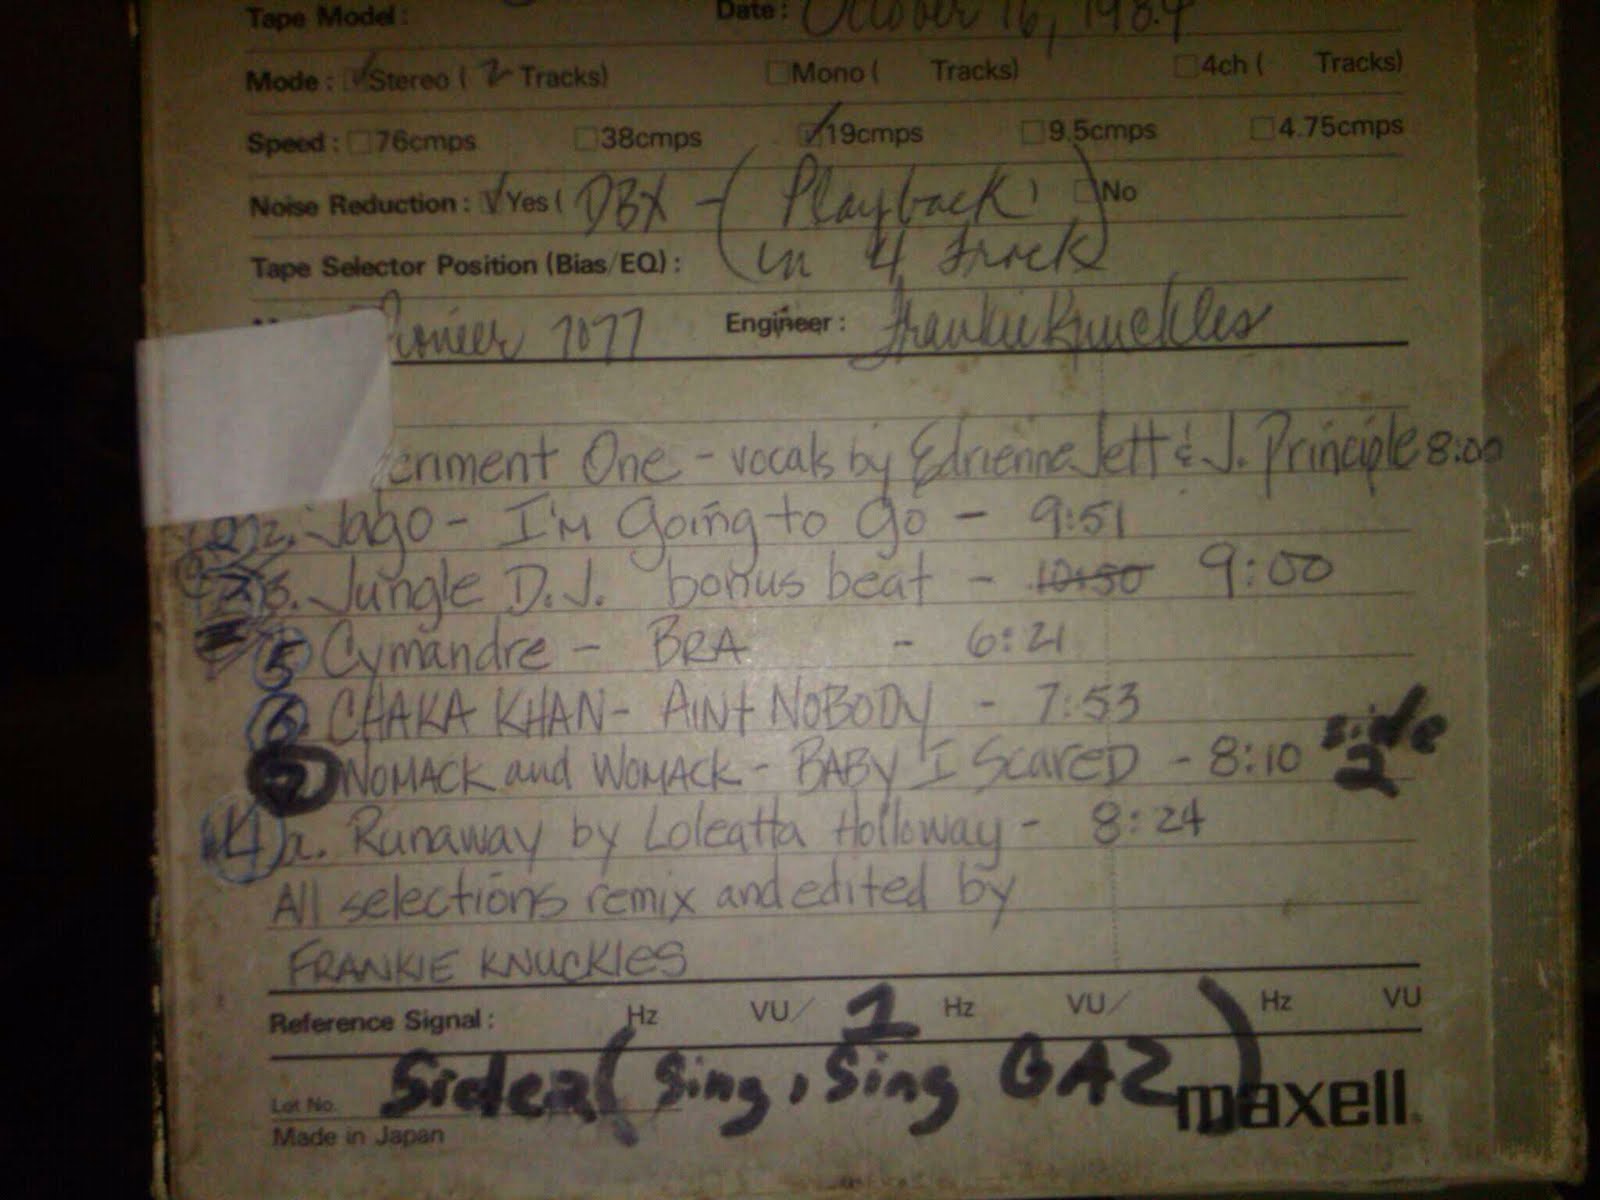 Tape Model: Date: October 16, 1984
Mode: Stereo (2 Tracks) Mono ( Tracks) 4ch ( Tracks)
Speed: 76cmps 38cmps 19cmps 9.5cmps 4.75cmps
Noise Reduction: Yes ( DBX - (Playback) No
Tape Selector Position (Bias/EQ): in 4 track)
Pioneer 7077 Engineer: Frankie Knuckles
enment One - vocals by Edrienne Jett & J. Principle 8:00
2. Jago - I'm Going to Go - 9:51
3. Jungle D.J. bonus beat - 10:50 9:00
5 Cymandre - BRA - 6:21
6 CHAKA KHAN - AINt NOBODY - 7:53
WOMACK and WOMACK - BABY I ScareD - 8:10 side 2
4 Runaway by Loleatta Holloway - 8:24
All selections remix and edited by
FRANKIE KNUCKLES
Reference Signal: Hz VU/ 1 Hz VU/ Hz VU
(Sing, Sing GAZ)
Lot No. maxell
Made in Japan